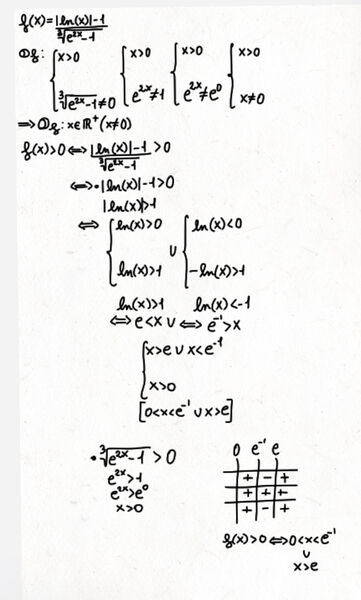 f(x)=|ln(x)|-1/∛(e^2x-1)
Df: { x>0 ∛(e^2x-1)≠0 { x>0 e^2x≠1 { x>0 e^2x≠e^0 { x>0 x≠0
⇒ Df: x∈ℝ⁺(x≠0)
f(x)>0 ⇔ |ln(x)|-1/∛(e^2x-1) >0
⇔ •|ln(x)|-1>0
|ln(x)|>1
⇔ { ln(x)>0 ln(x)>1 ∪ { ln(x)<0 -ln(x)>1
ln(x)>1 ln(x)<-1
⇔ e<x ∪ ⇔ e^-1>x
{ x>e ∪ x<e^-1
x>0
[0<x<e^-1 ∪ x>e]
• ∛(e^2x-1) >0
e^2x>1
e^2x>e^0
x>0
0 e^-1 e
+ - +
+ + +
+ - +
f(x)>0 ⇔ 0<x<e^-1
∪
x>e